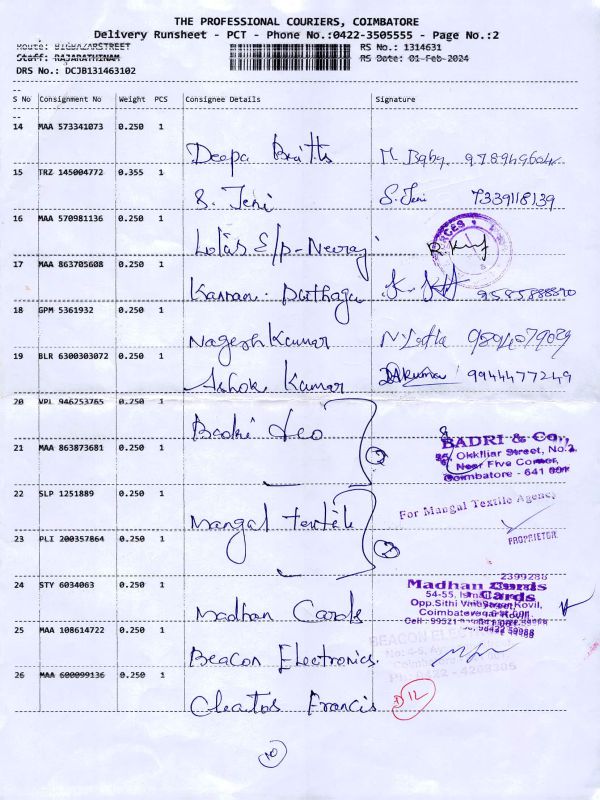 THE PROFESSIONAL COURIERS, COIMBATORE
Delivery Runsheet - PCT - Phone No.:0422-3505555 - Page No.:2
Route: BIGBAZARSTREET RS No.: 1314631
Staff: RAJARATHINAM RS Date: 01-Feb-2024
DRS No.: DCJB131463102
S No Consignment No Weight PCS Consignee Details Signature
14 MAA 573341073 0.250 1
Deepa
15 TRZ 145004772 0.355 1
S. Jeni S. Jeni 7339118139
16 MAA 570981136 0.250 1
17 MAA 863705608 0.250 1
Kannan
18 GPM 5361932 0.250 1
Nagesh Kumar
19 BLR 6300303072 0.250 1
Ashok Kumar 9944477249
20 VPL 946253765 0.250 1
Badri &co
BADRI & Co.,
21 MAA 863873681 0.250 1
Okkiliar Street, No.2
Near Five Corner,
Coimbatore - 641 001
2
22 SLP 1251889 0.250 1
Mangal textile
For Mangal Textile Agency
23 PLI 200357864 0.250 1
PROPRIETOR
2
24 STY 6034063 0.250 1
Madhan Cards
2399288
Madhan Cards
54-55,
Opp.Sithi Kovil,
25 MAA 108614722 0.250 1
Beacon Electronics.
26 MAA 600099136 0.250 1
Cleatos Francis
D12
10